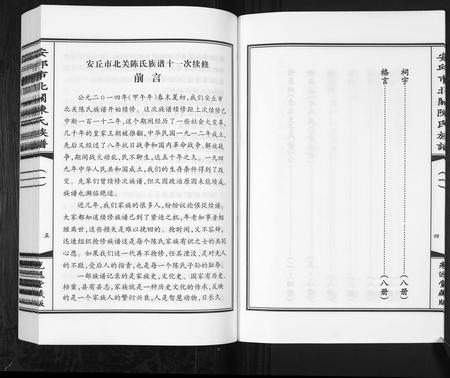 安丘市北关陈氏族谱十一次续修
前言
公元二○一四年(甲午年)春末夏初,我们安丘市
北关陈氏族谱开始续修。这次族谱续修距上次续修已
中断一百一十二年,这个期间经历了一些社会大变革,
几千年的皇家王朝被推翻,中华民国一九一二年成立,
先后又经过了八年抗日战争和国内革命战争、解放战
争,期间战火动乱,民不聊生,达五十年之久。一九四
九年中华人民共和国成立,我们的生存条件得到了改
变。先辈们曾续修次族谱,但又因政治原因未能续成,
族谱也濒临绝迹。
近几年,我们家族的很多人,纷纷议论催促续谱。
大家都知道续修族谱已到了紧迫之机,年老知事者相
继离世,这些损失是难以挽回的。抢时间,义不容辞,
迅速组织抢修族谱这是每个陈氏家族有识之士的共同
心愿。如果我们这一代再不抢修,任其湮没,是对先人
的不敬,受后人的指责,也是每一个陈氏子孙的耻辱。
一部族谱记录的是家族史、文化史。国家有历史、
档案,县有县志,家族就是一种历史文化的传承,反映
的是一个家族人的繁衍兴衰,人是智慧动物,日长久
安邱市北关陈氏族谱
(一)
五
安丘市北关陈氏族谱
(一)
四
祠字
(八册)
格言
(八册)